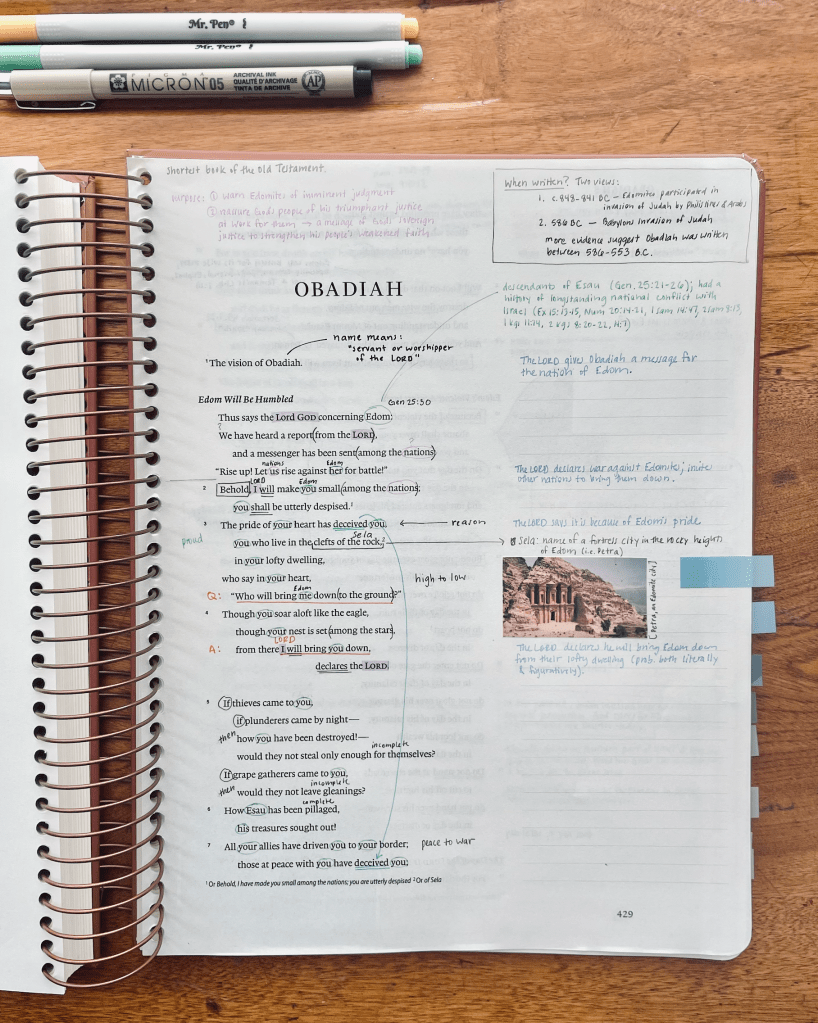 Mr. Pen®
Mr. Pen®
PIGMA
MICRON 05
ARCHIVAL INK
QUALITÉ D'ARCHIVAGE
TINTA DE ARCHIVE
AP
Shortest book of the Old Testament.
purpose: ① warn Edomites of imminent judgment
② reassure God's people of his triumphant justice
at work for them → a message of God's sovereign
justice to strengthen his people's weakened faith
When written? Two views:
1. c. 848-841 BC – Edomites participated in
invasion of Judah by Philistines & Arabs
2. 586 BC – Babylons invasion of Judah
more evidence suggest Obadiah was written
between 586-553 B.C.
OBADIAH
descendants of Esau (Gen. 25:21-26); had a
history of longstanding national conflict with
Israel (Ex 15:15, Num 20:14-21, 1 Sam 14:47, 2 Sam 8:13,
1 kgs 11:14, 2 kgs 8:20-22, 14:7)
name means:
"servant or worshipper
of the LORD"
1 The vision of Obadiah.
The LORD gives Obadiah a message for
the nation of Edom.
Edom Will Be Humbled
Gen 25:30
Thus says the Lord GOD concerning Edom:
?
We have heard a report (from the LORD),
?
and a messenger has been sent (among the nations)
nations Edom
"Rise up! Let us rise against her for battle!"
The LORD declares war against Edomites; invite
other nations to bring them down.
LORD Edom
2 Behold, I will make you small (among the nations);
you shall be utterly despised.1
3 The pride of your heart has deceived you,
reason
The LORD says it is because of Edom's pride
Sela
proud
you who live in the clefts of the rock,2
Sela: name of a fortress city in the rocky heights
of Edom (i.e. Petra)
in your lofty dwelling,
who say in your heart,
high to low
Edom
Q: "Who will bring me down (to the ground?"
[Petra, an Edomite city]
4 Though you soar aloft like the eagle,
though your nest is set (among the stars),
LORD
A: from there I will bring you down,
declares the LORD.
The LORD declares he will bring Edom down
from their lofty dwelling (prob. both literally
& figuratively).
5 If thieves came to you,
if plunderers came by night—
then how you have been destroyed!—
incomplete
would they not steal only enough for themselves?
If grape gatherers came to you,
incomplete
then would they not leave gleanings?
complete
6 How Esau has been pillaged,
his treasures sought out!
7 All your allies have driven you to your border;
peace to war
those at peace with you have deceived you;
1 Or Behold, I have made you small among the nations; you are utterly despised 2 Or of Sela
429